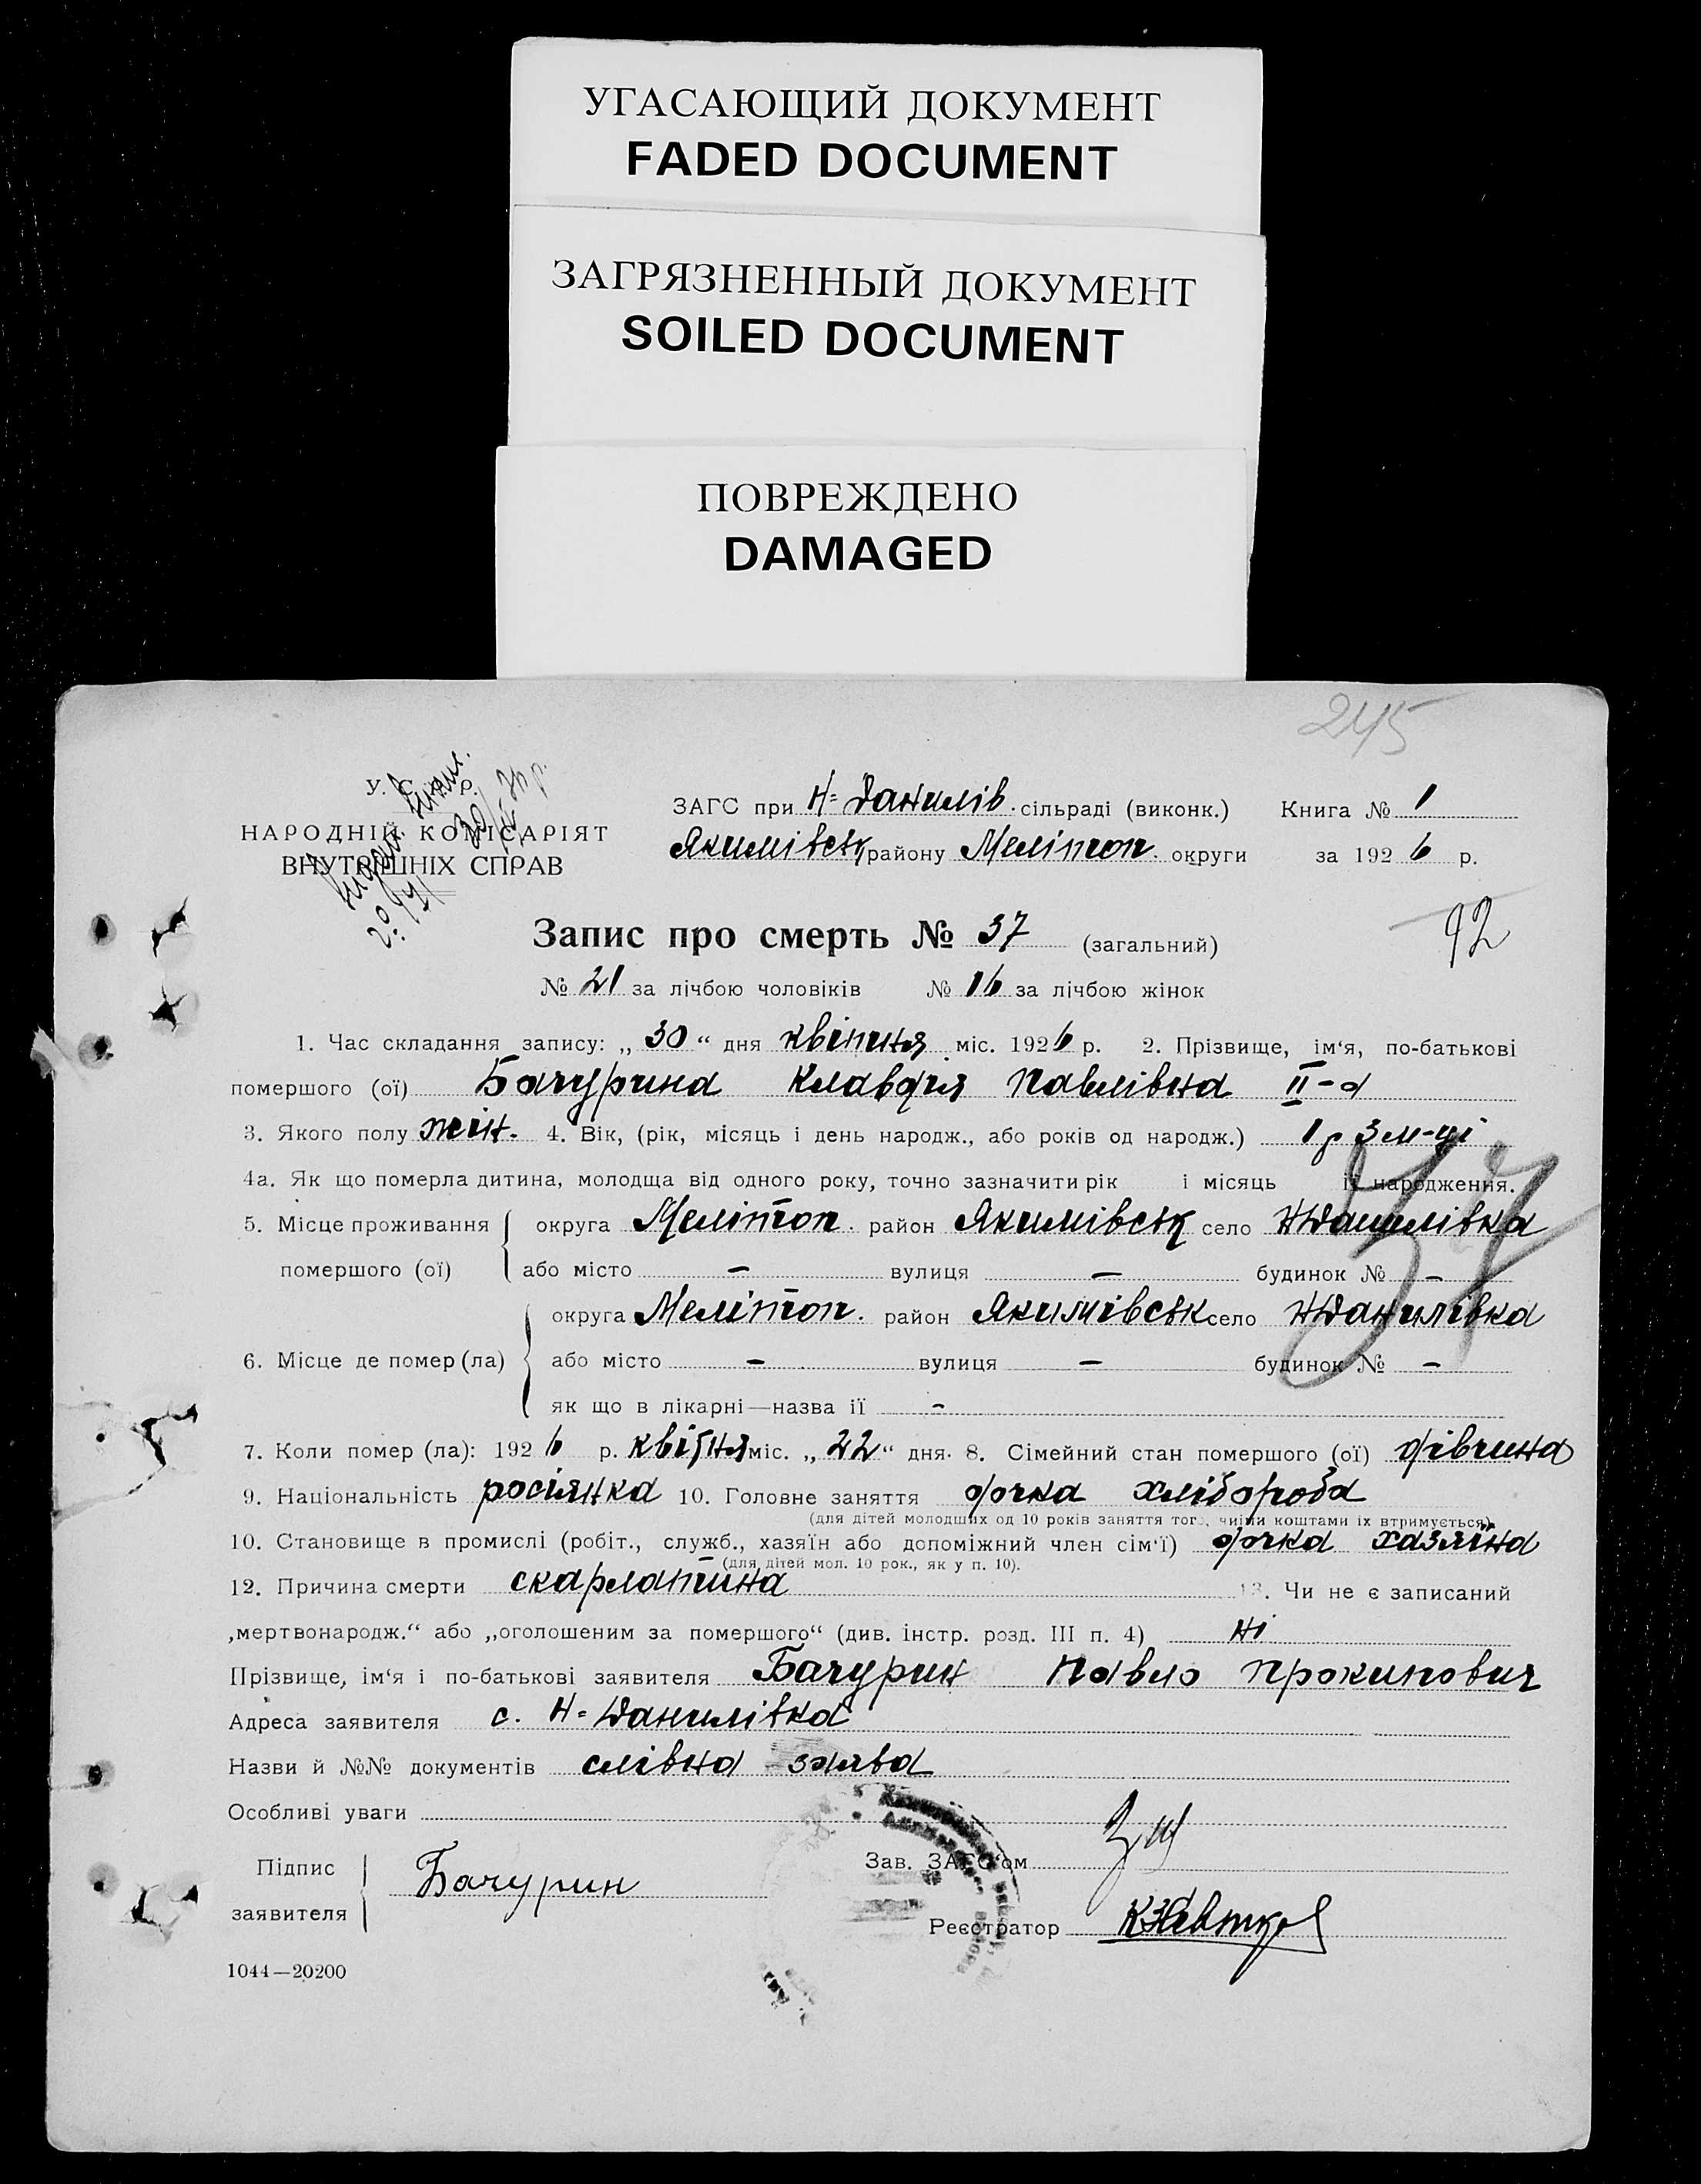 УГАСАЮЩИЙ ДОКУМЕНТ
FADED DOCUMENT
ЗАГРЯЗНЕННЫЙ ДОКУМЕНТ
SOILED DOCUMENT
ПОВРЕЖДЕНО
DAMAGED
245
У. С. Р. Р.
НАРОДНІЙ КОМІСАРІЯТ
ВНУТРІШНІХ СПРАВ
ЗАГС при Н=Данилів. сільраді (виконк.) Книга № 1
Якимівськ району Мелітоп. округи за 1926 р.
92
Запис про смерть № 37 (загальний)
№ 21 за лічбою чоловіків № 16 за лічбою жінок
1. Час складання запису: „30“ дня квітня міс. 1926 р. 2. Прізвище, ім‘я, по-батькові
помершого (ої) Бачурина Клавдія Павлівна ІІ-а
3. Якого полу жін. 4. Вік, (рік, місяць і день народж., або років од народж.) 1 р 3 м-ці
4а. Як що померла дитина, молодща від одного року, точно зазначити рік і місяць її народження.
37
5. Місце проживання помершого (ої) округа Мелітоп. район Якимівськ село НДанилівка
або місто — вулиця — будинок № —
6. Місце де помер (ла) округа Мелітоп. район Якимівськ село НДанилівка
або місто — вулиця — будинок № —
як що в лікарні—назва її -
7. Коли помер (ла): 1926 р. квітня міс. „22“ дня. 8. Сімейний стан помершого (ої) дівчина
9. Національність росіянка 10. Головне заняття дочка хлібороба
(для дітей молодших од 10 років заняття того, чиїми коштами їх втримується).
10. Становище в промислі (робіт., служб., хазяїн або допоміжний член сім‘ї) дочка хазяїна
(для дітей мол. 10 рок., як у п. 10).
12. Причина смерти скарлатина 13. Чи не є записаний
„мертвонародж.“ або „оголошеним за помершого“ (див. інстр. розд. III п. 4) ні
Прізвище, ім‘я і по-батькові заявителя Бачурин Павло Прокипович
Адреса заявителя с. Н=Данилівка
Назви й №№ документів слівна заява
Особливі уваги
Підпис заявителя Бачурин
Зав. ЗАГС‘ом
Реєстратор
1044—20200